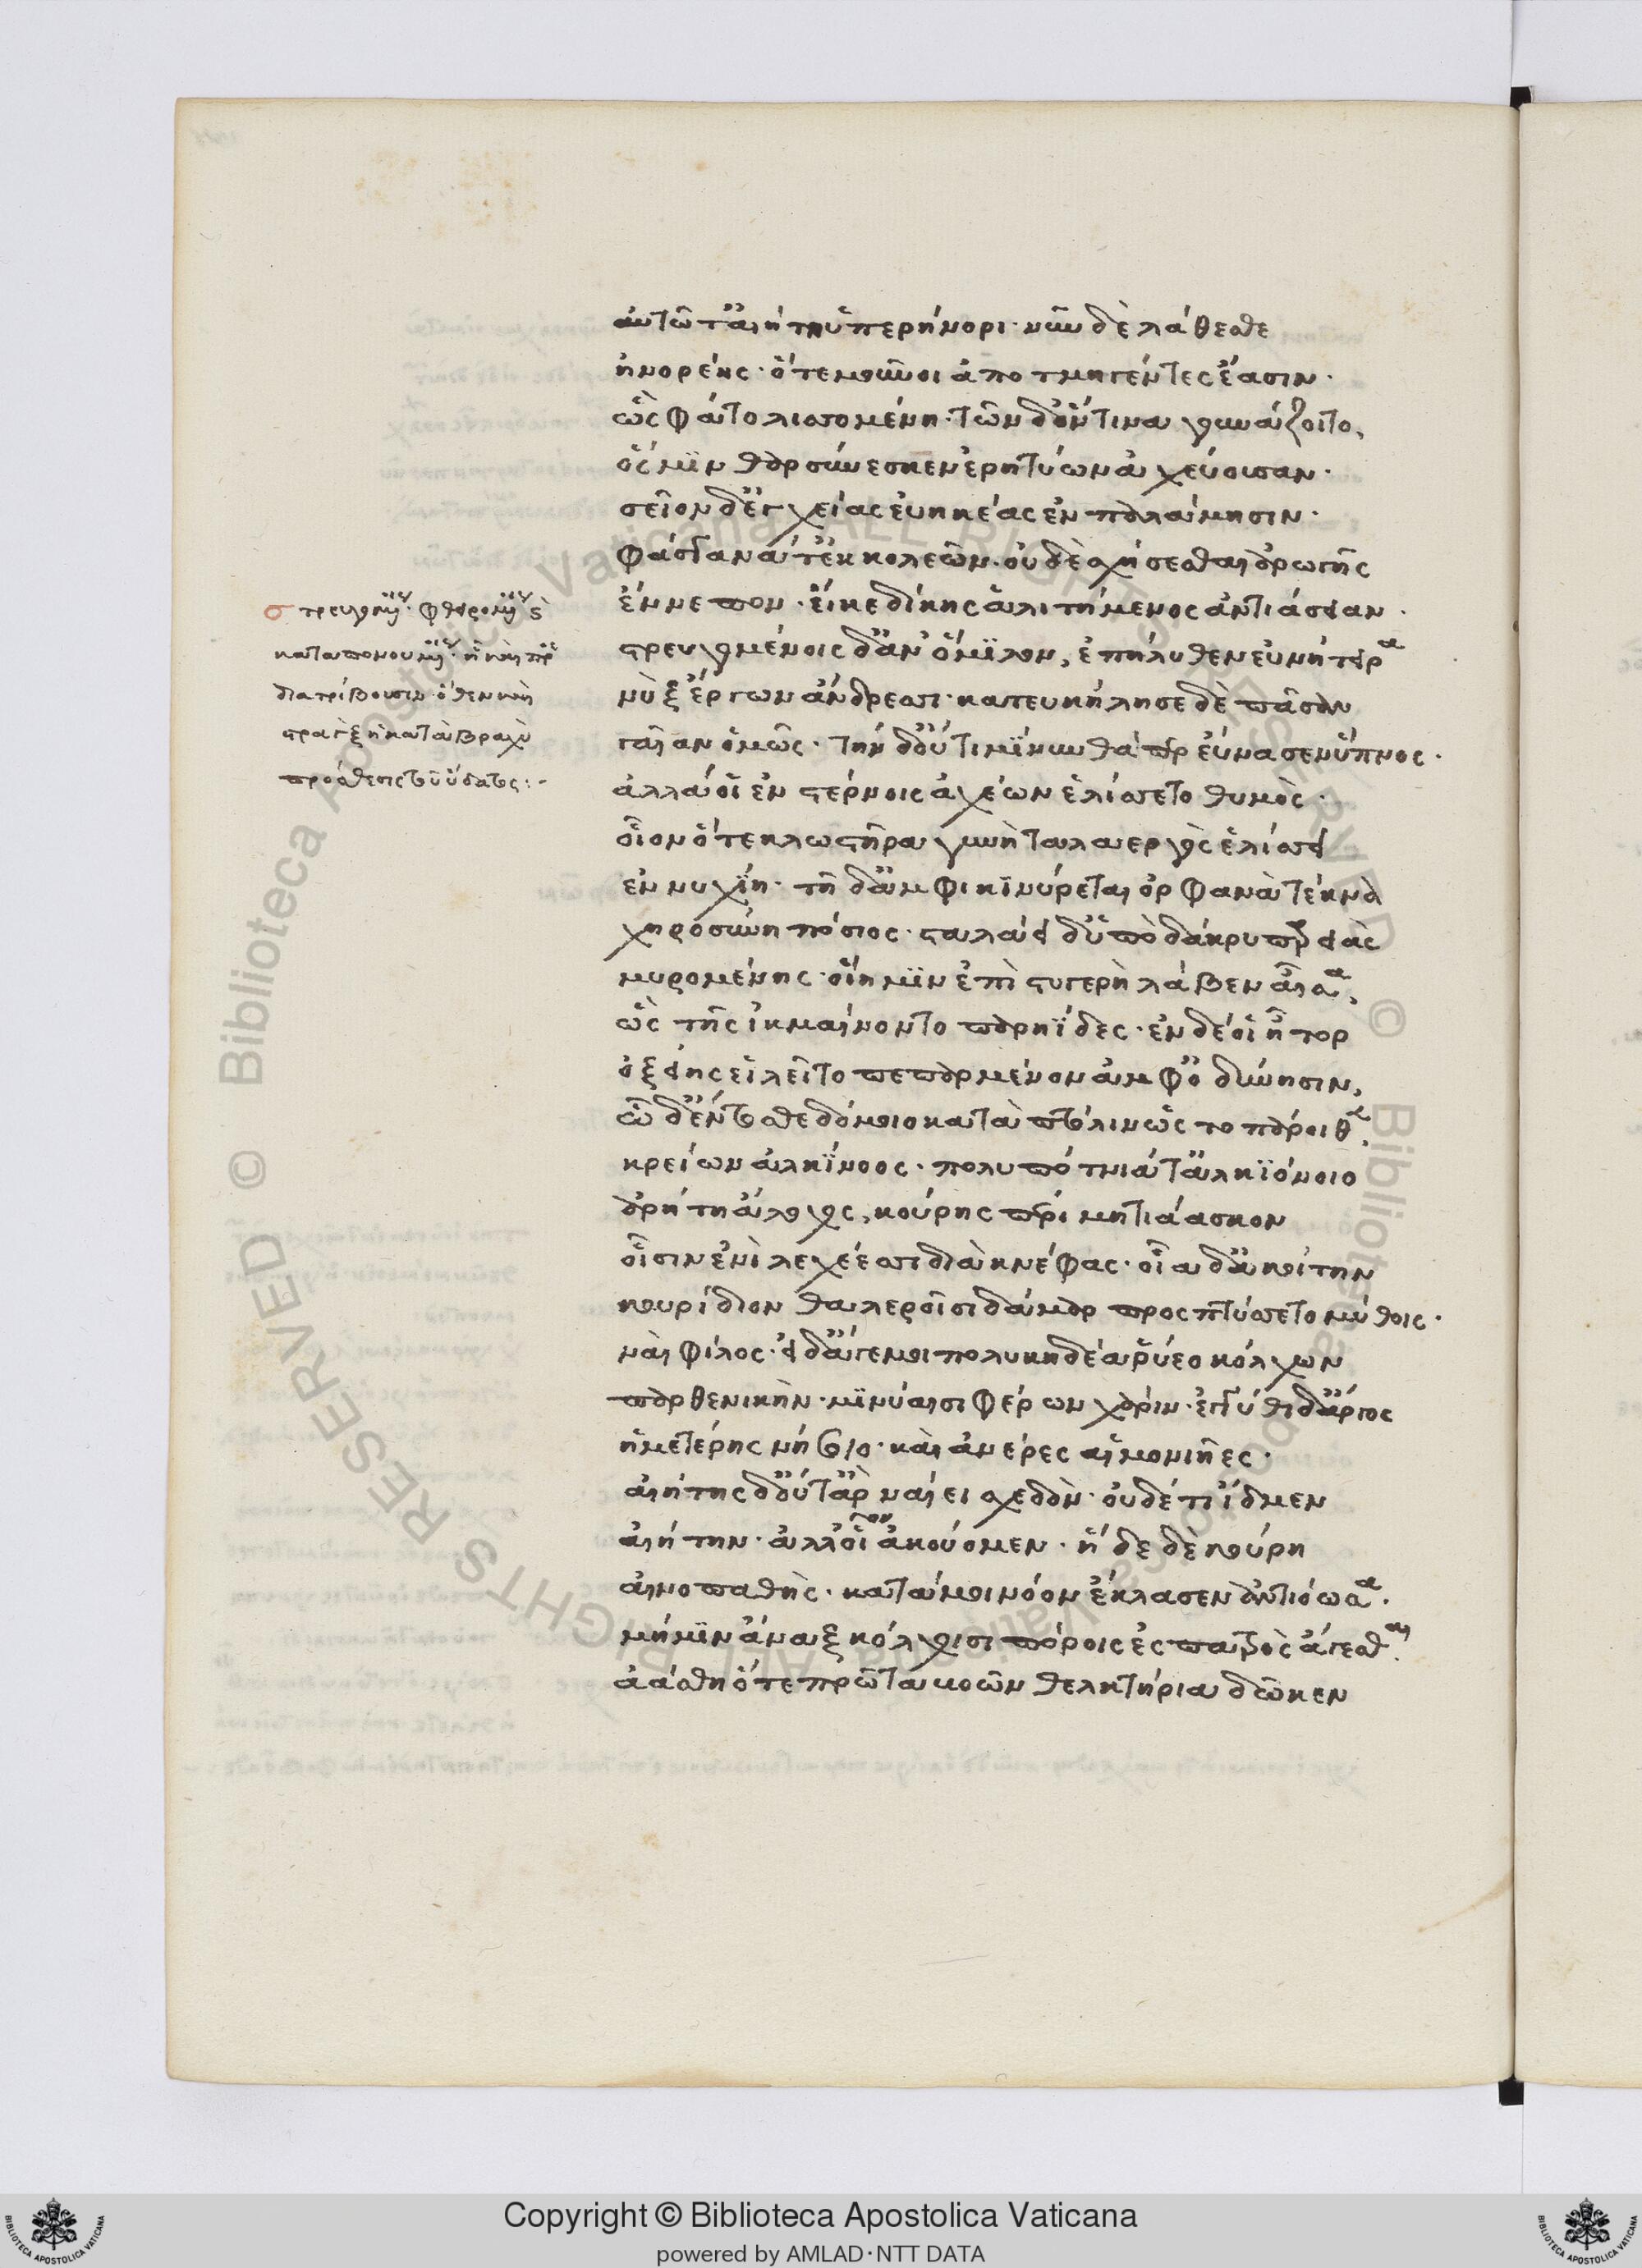 αὐτῶ τ' αἰήτη ὑπερήνορι· νῦν δὲ λάθεσθε
ἠνορέης· ὅτε μοῦνοι ἀποτμηγέντες ἔασιν·
ὣς φάτο λισσομένη· τῶν δ' ὅντινα γουνάζοιτο,
ὅς μϊν θαρσύνεσκεν ἐρητύων ἀχεύουσαν·
σεῖον δ' ἐγχείας εὐηκέας ἐν παλάμησιν·
φάσγανά τ' ἐκ κολεῶν· οὐδὲ σχήσεσθαι ἀρωγῆς
ἔννεπον· εἴκε δίκης ἀλιτήμενος ἀντιάσειαν·
στρευγομένοις δ' ἂν' ὅμϊλον, ἐπήλυθεν εὐνήτειρα
νὺξ ἔργων ἄνδρεσσι· κατευκήλησε δὲ πᾶσαν
γαῖαν ὁμῶς· τὴν δ' οὔτι μίνυνθά περ εὔνασεν ὕπνος·
ἀλλά οἱ ἐν στέρνοις ἀχέων εἱλίσσετο θυμὸς·
οἷον ὅτε κλωστῆρα γυνὴ ταλαεργὸς ἑλίσσει
ἐννυχίη· τῆ δ' ἀμφικϊνύρεται ὀρφανὰ τέκνα
χηροσύνη πόσιος· σταλάει δ' ὑπὸ δάκρυ παρειὰς
μυρομένης· οἵη μϊν ἐπὶ στυγερὴ λάβεν αἶσα,
ὣς τῆς ἰκμαίνοντο παρηΐδες· ἐν δέ οἱ ἦτορ
ὀξείης εἰλεῖτο πεπαρμένον ἀμφ' ὀδύνησιν,
τὼ δ' ἔντοσθε δόμοιο κατὰ πτόλιν ὡς τοπάροιθε,
κρείων ἀλκίνοος· πολυπότνιά τ' ἀλκϊνόοιο
ἀρήτη ἄλοχος, κούρης πέρι μητιάασκον
οἷσιν ἐνὶ λεχέεσσι διὰ κνέφας· οἷα δ' ἀκοίτην
κουρίδιον θαλεροῖσι δάμαρ προσπτύσσετο μύθοις·
ναὶ φίλος· εἰ δ' ἄγε μοι πολυκηδέα ῥύεο κόλχων
παρθενικὴν· μϊνύαισι φέρων χάριν· ἐγγύθι δ' ἄργος
ἡμετέρης νήσοιο· καὶ ἀνέρες αἱμονιῆες·
αἰήτης δ' οὔτ' ἂρ ναίει σχεδὸν· οὐδέ τι ἴδμεν
αἰήτην· ἀλλ' οἷον ἀκούομεν· ἥδε δὲ κούρη
αἰνοπαθὴς· κατά μοι νόον ἔκλασεν ἀντιόωσα·
μή μϊν ἄναξ κόλχοισι πόροις ἐς πατρὸς ἄγεσθαι.
ἀάσθη ὅτε πρῶτα βοῶν θελκτήρια δῶκεν
στρευγομένοις· φθειρομένοις
καταπονουμένοις· ἢ καὶ
διατρίβουσιν· ὅθεν καὶ
στραγξ ἡ κατὰ βραχὺ
πρόσθεσις τοῦ ὕδατος:-
Copyright © Biblioteca Apostolica Vaticana
powered by AMLAD·NTT DATA